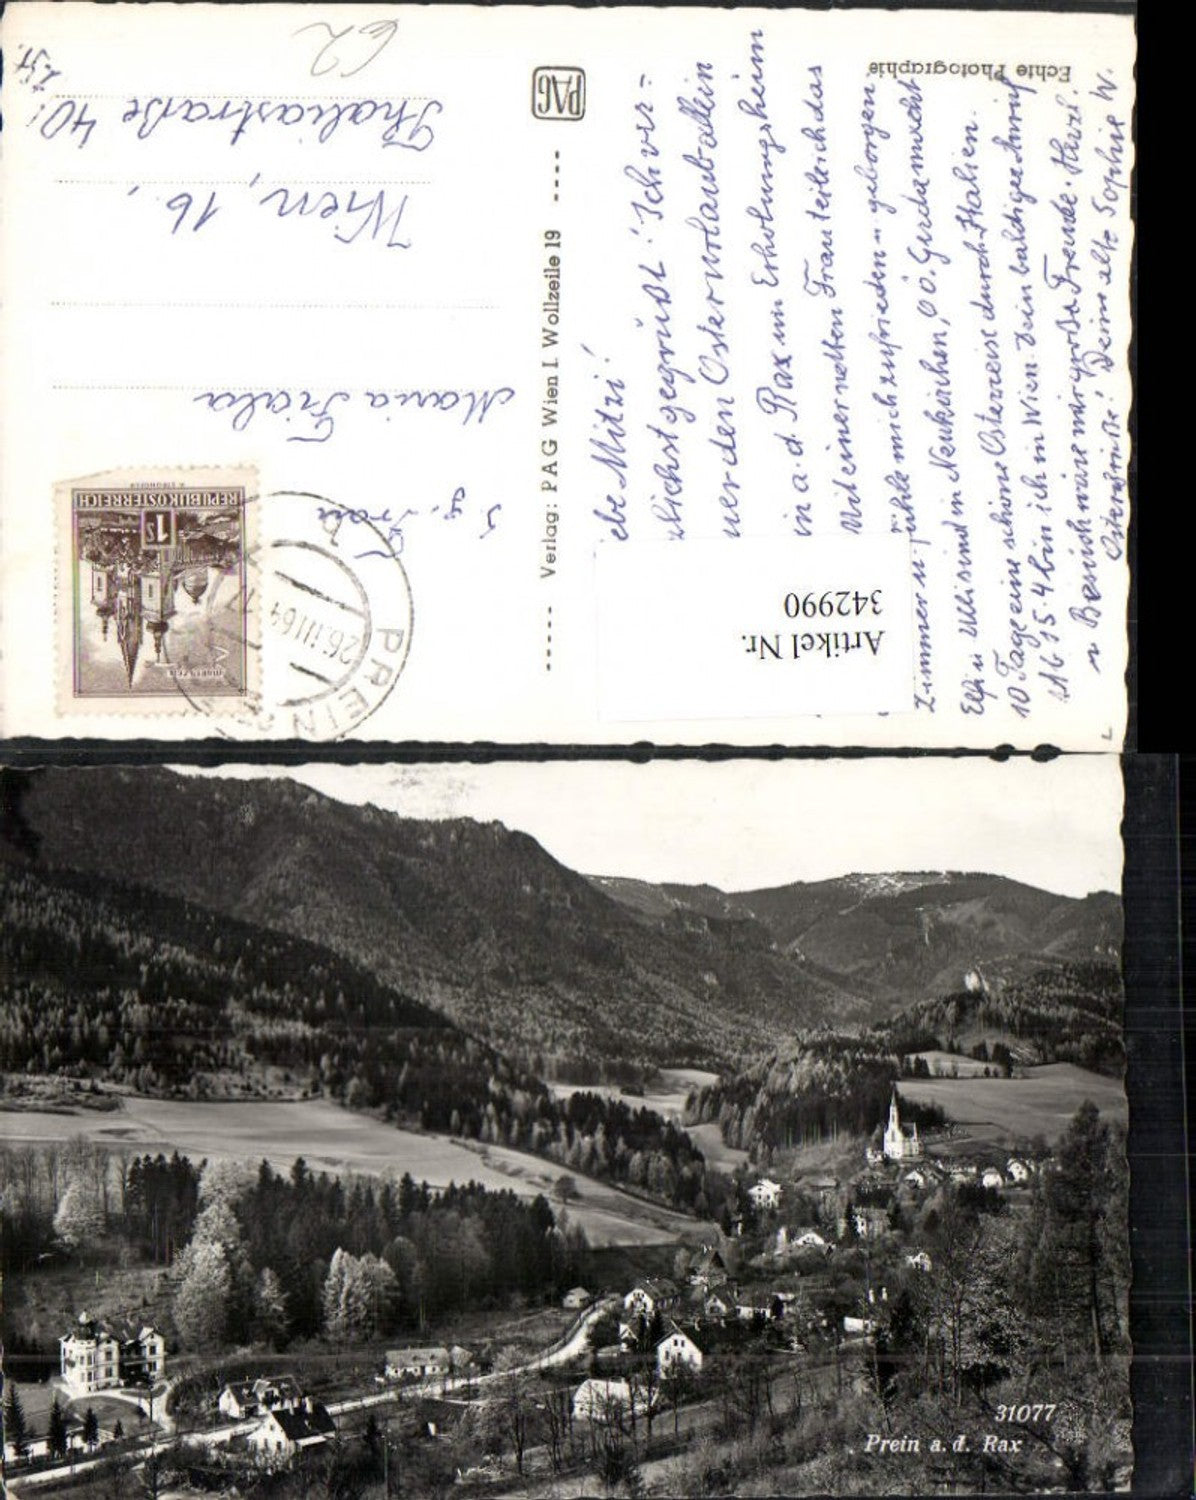 Echte Photographie
PAG
Verlag: PAG Wien I. Wollzeile 19
REPUBLIK ÖSTERREICH
1s
PREIN
26.III.64
Artikel Nr.
342990
Frau
Maria Fiala
Wien, 16.,
Thaliastraße 40.
62
Mitzi!
Ich ver=
Osterurlaub allein
in a. d. Rax im Erholungsheim
Mit einer netten Frau teile ich das
Zimmer u. fühle mich zufrieden u. geborgen.
Elfi u. Ulli sind in Neukirchen, OÖ. Gerda macht
10 Tage eine schöne Osterreise durch Italien.
Ab 15.4 bin ich in Wien. Dein baldiger Anruf
u. Besuch wäre mir große Freude. Herzl.
Ostergrüße! Deine alte Sophie W.
31077
Prein a. d. Rax